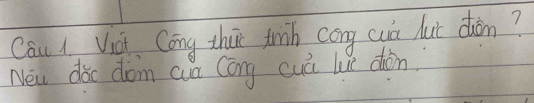 Câu 1. Viết Công thức tính công của lực điện?
Nêu đặc điểm của Công của lực điện.